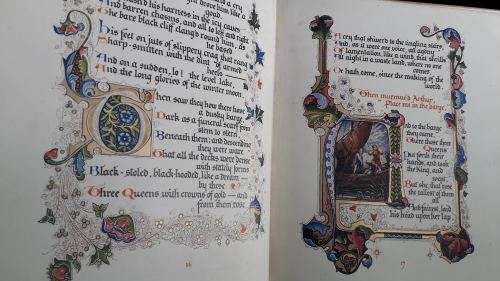 a cry
drove him like a
his harness in the icy caves
And barren chasms, and all
The bare black cliff clang'd round him, as
he based
His feet on juts of slippery crag that rang
Sharp-smitten with the dint of armed
heels
And on a sudden, lo! the level lake,
And the long glories of the winter moon.
Then saw they how there hove
a dusky barge
Dark as a funeral scarf from
stem to stern,
Beneath them; and descending
they were ware
That all the decks were dense
with stately forms
Black-stoled, black-hooded, like a dream —
by these
Three Queens with crowns of gold — and
from them rose
A cry that shiver'd to the tingling stars,
And, as it were one voice, an agony
Of lamentation, like a wind, that shrills
All night in a waste land, where no one
comes,
Or hath come, since the making of the
world.
Then murmur'd Arthur
Place me in the barge,
And to the barge
they came.
There those three
Queens
Put forth their
hands, and took
the king, and
wept.
But she, that rose
the tallest of them
all
And fairest, laid
his head upon her lap,